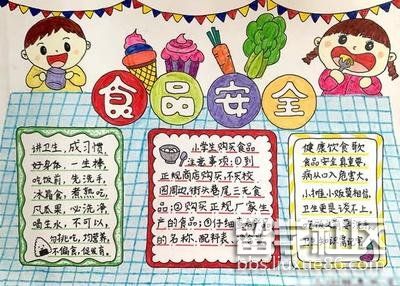 食品安全
讲卫生,成习惯
好身体,一生棒
吃饭前,先洗手,
冰箱食,煮熟吃,
风瓜果,必洗净,
喝生水,不可以,
勿挑吃,均营养,
不偏食,促生育,
小学生购买食品
注意事项:①到
正规商店购买,不买校
园周边,街头巷尾三无食
品;②购买正规厂家生
产的食品;③仔细
的名称,配料表
健康饮食歌
食品安全真重要,
病从口入危害大。
小摊小贩莫相信,
卫生更是谈不上。